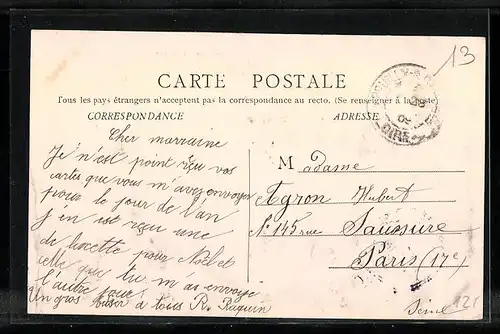 13
CARTE POSTALE
Tous les pays étrangers n'acceptent pas la correspondance au recto. (Se renseigner à la poste)
CORRESPONDANCE
ADRESSE
Cher marraine
Je n'est point reçu vos
cartes que vous m'avez envoyer
pour le jour de l'an
j'en est reçu une
de lucette pour Noël et
celle que tu m'as envoyé
l'autre jour
Un gros baiser à tous R. Raguin
Madame
Agron Hubert
N° 145 rue Saussure
Paris (17e)
Seine
121